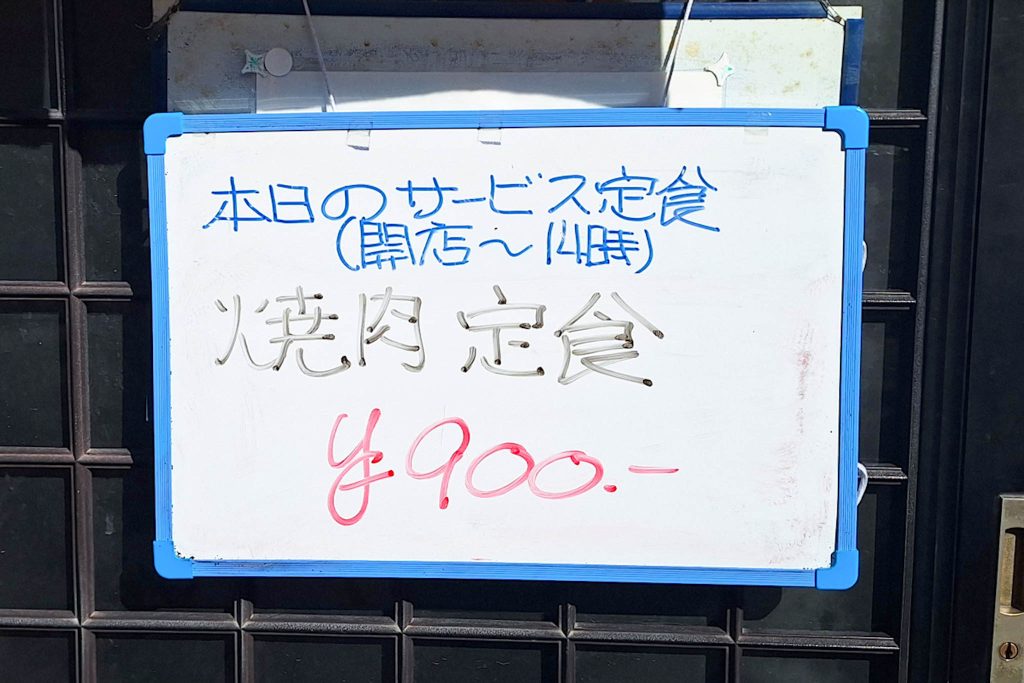 本日のサービス定食
(開店～14時)
焼肉定食
¥900.-